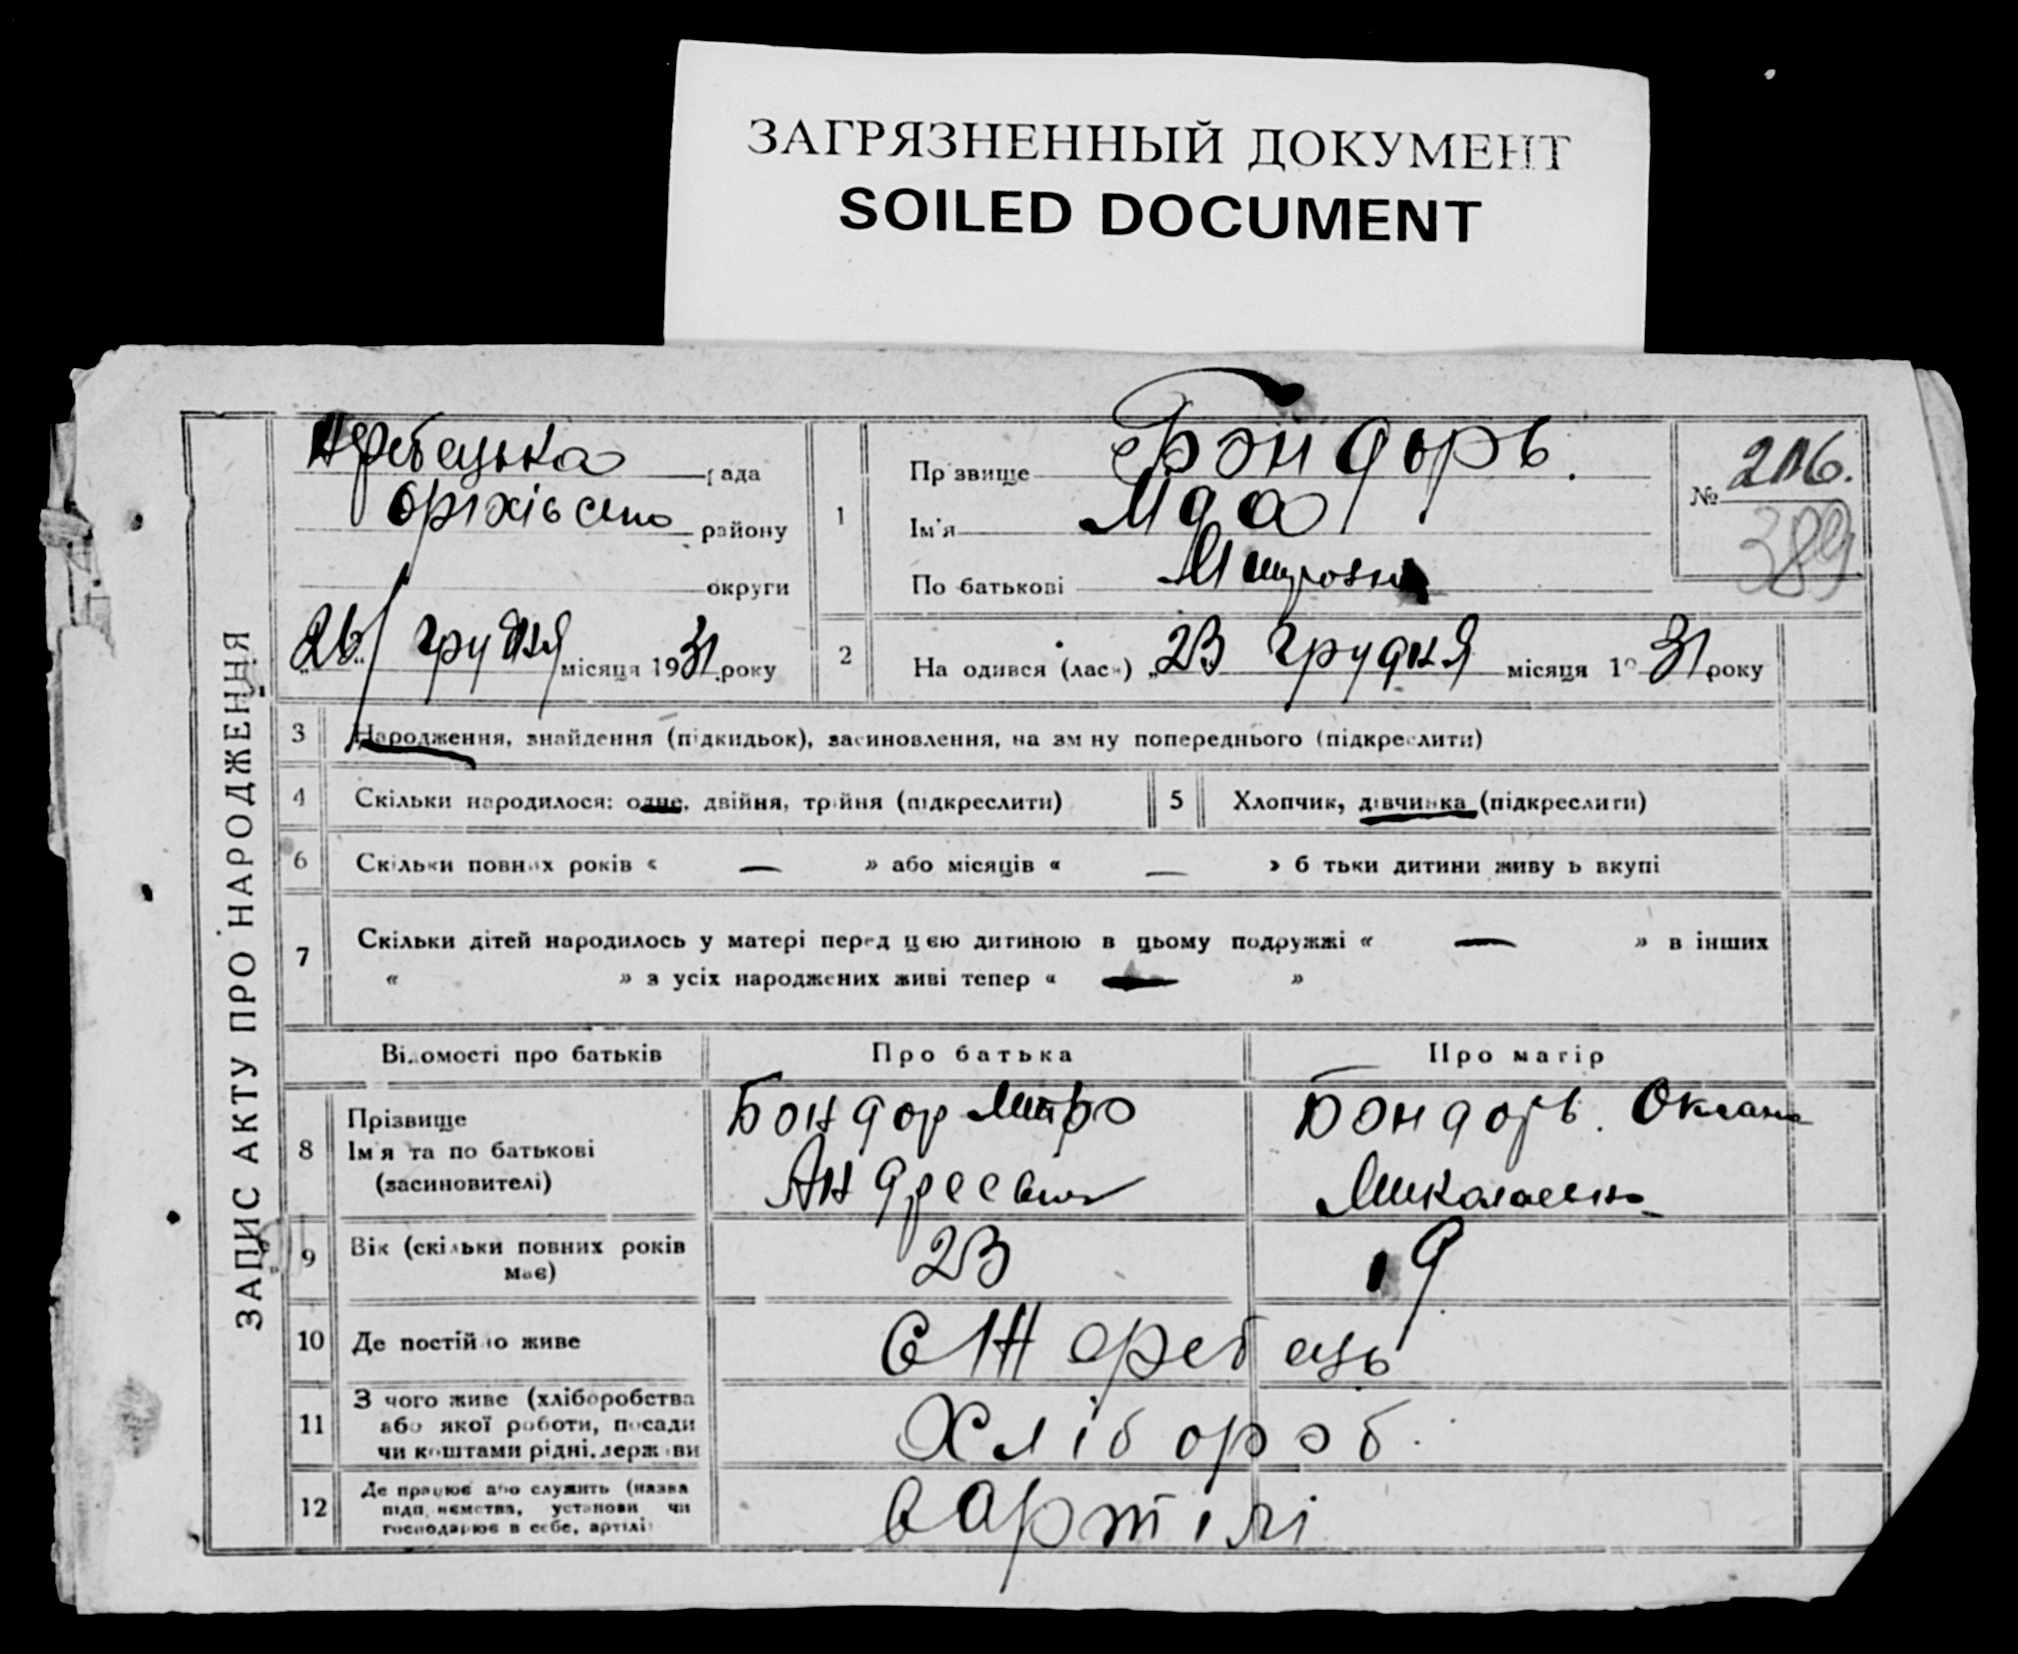 ЗАГРЯЗНЕННЫЙ ДОКУМЕНТ
SOILED DOCUMENT
ЗАПИС АКТУ ПРО НАРОДЖЕННЯ
Жеребецька рада
оріхівсько району
округи
26 грудня місяця 1931 року
1
Прізвище Бондарь.
Ім'я
По батькові Митровна
№ 216.
389
2
На одився (лась) „23 грудня місяця 1931 року
3 Народження, знайдення (підкидьок), засиновлення, на зміну попереднього (підкреслити)
4 Скільки народилося: одне, двійня, трійня (підкреслити)
5 Хлопчик, дівчинка (підкреслити)
6 Скільки повних років « — » або місяців « — » б тьки дитини живу ь вкупі
7 Скільки дітей народилось у матері перед цією дитиною в цьому подружжі « — » в інших
« » з усіх народжених живі тепер « — »
Відомості про батьків Про батька Про матір
8 Прізвище
Ім'я та по батькові
(засиновителі)
Бондар Митро
Андреевич
Бондарь. Оксана
Миколаевна
9 Вік (скільки повних років має) 23 19
10 Де постійно живе с Жеребець
11 З чого живе (хліборобства
або якої роботи, посади
чи коштами рідні, держави
Хлібороб.
12 Де працює або служить (назва
підприємства, установи чи
господарює в себе, артілі
в артілі